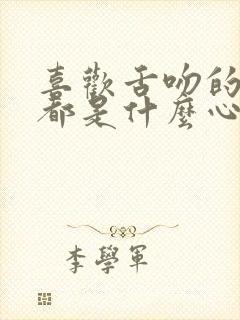 喜歡舌吻的
都是什麼心
李學軍